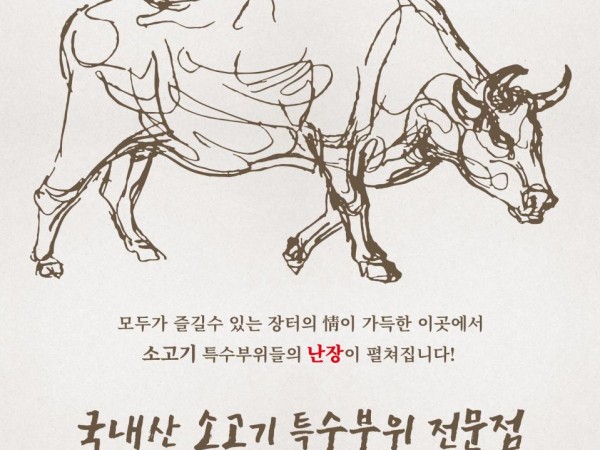 모두가 즐길수 있는 장터의 情이 가득한 이곳에서
소고기 특수부위들의 난장이 펼쳐집니다!
국내산 소고기 특수부위 전문점